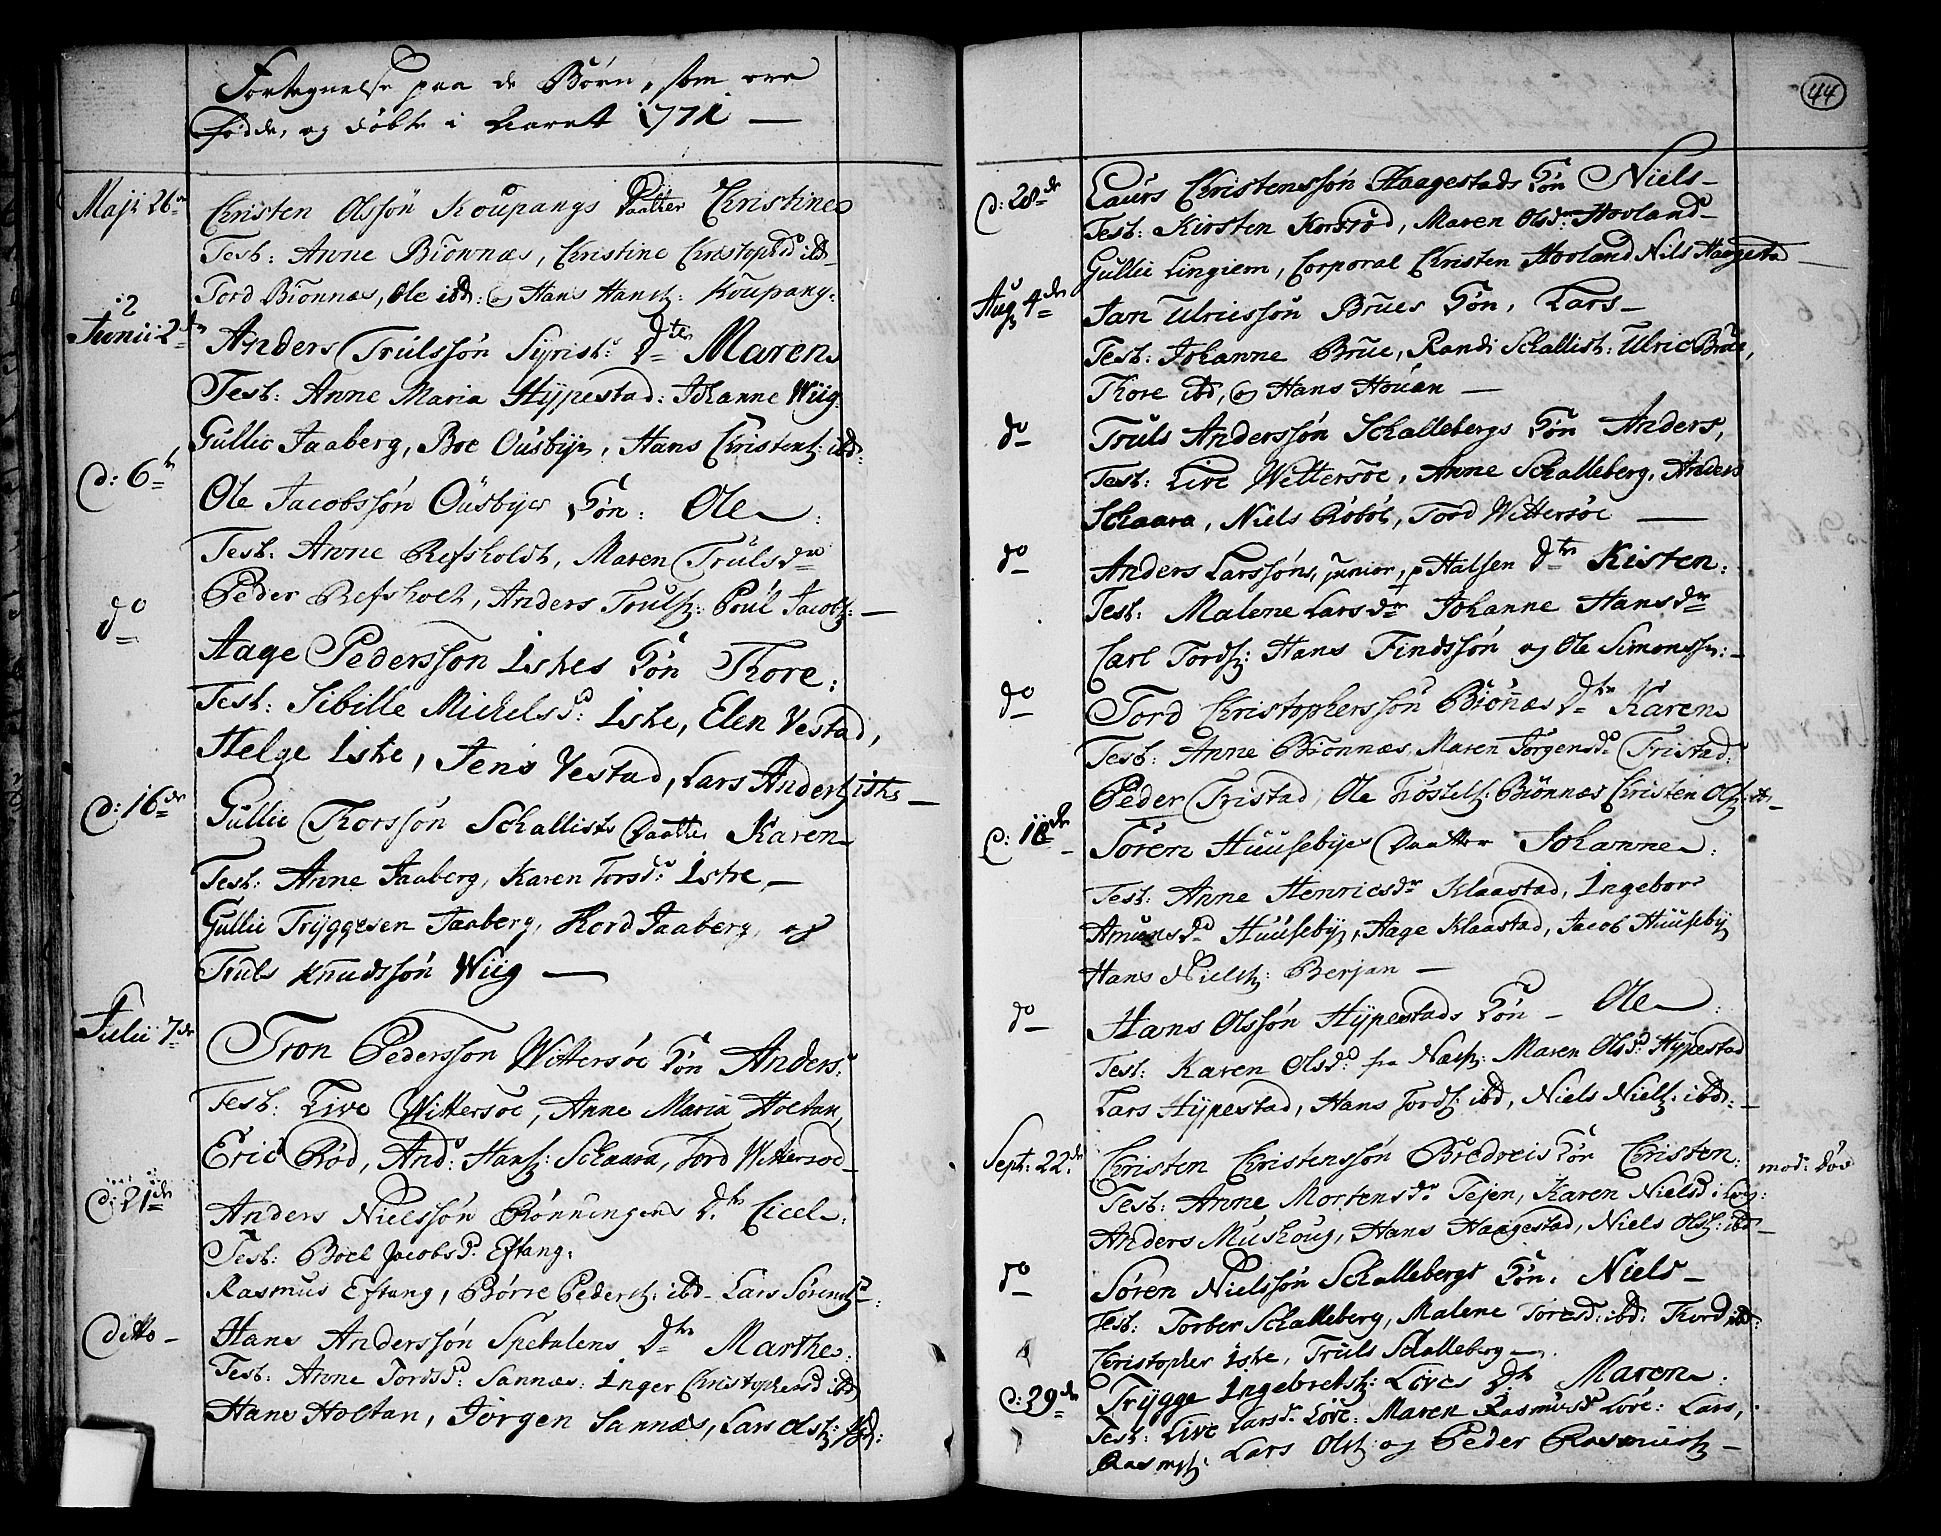 Fortegnelse paa de Børn, som ere
fødde, og døbte i Aaret 1771 —
Maji 26de
Christen Olssøn Koupangs Daatter Christine
Test: Anne Biønnæs, Christine Christophsd ibd
Tord Biønnæs, Ole ibd: og Hans Hansz: Koupang.
Junii 2den
Anders Trulssøn Syrist: Dter Maren
Test: Anne Maria Hÿpestad: Johanne Wiig
Gullic Jaaberg, Boe Ousbÿe, Hans Christensz: ibd:
d: 6te
Ole Jacobssøn Ousbÿes Søn: Ole
Test: Anne Refsholdt, Maren Trulsdr
Peder Refsholt, Anders Trulsz: Poul Jacobsz: —
do
Aage Pederssøn Istres Søn Thore:
Test: Sibille Michelsd: Istre, Elen Vestad,
Helge Istre, Jens Vestad, Lars Andersz istre —
d: 16de
Gullic Thorssøn Schallists Daatter Karen
Test: Anne Jaaberg, Karen Torsdr Istre, —
Gullic Trÿggesen Jaaberg, Hord Jaaberg, og
Truls Knudssøn Wiig —
Julii 7de
Tron Pederssøn Wittersøe Søn Anders:
Test: Live Wittersøe, Anne Maria Holtan,
Eric Rød, And: Hansz: Schaara, Tord Wittersøe
d: 21de
Anders Nielssøn Rønningens Dtr Cicel:
Test: Boel Jacobsd: Eftang:
Rasmus Eftang, Børre Pedersz: ibd – Lars Sørensz:
Ditto –
Hans Anderssøn Spetalens Dtr Marthe:
Test: Anne Tordsd: Sannæs: Inger Christophersd ibd
Hans Holtan, Jørgen Sannæs, Lars Olsz: ibd:
44
d: 28de
Laurs Christenssøn Haagestads Søn Niels –
Test: Kirsten Korsrød, Maren Olsdr Hovland –
Gullic Lingiem, Corporal Christen Hovland Nils Haagestad
Aug 4de
Jan Ulricssøn Brues Søn, Lars –
Test: Johanne Brue, Randi Schallist: Ulric Brue,
Thore ibd, og Hans Houan —
do
Truls Anderssøn Schallebergs Søn Anders,
Test: Live Wettersøe, Anne Schalleberg, Anders
Schaara, Niels Røbøl, Tord Wettersøe —
do
Anders Larssøns, junior, p Halsen Dtr Kisten:
Test: Malene Larsdr Johanne Hansdr
Carl Tordsz: Hans Findssøn og Ole Simonssn: –
do
Tord Christopherssøn Biønnæs Dtr Karen
Test: Anne Biønnæs, Maren Jørgensdr Tristad:
Peder Tristad, Ole Biønnæs Christen Olsz
d: 18de
Søren Huusebÿes Daatter Johanne:
Test: Anne Henricsdr Klaastad, Ingebor
Amunsd Huusebÿ, Aage Klaastad, Jacob Huusebÿ
Hans Nielsz: Berjan —
do
Hans Olssøn Hÿpestads Søn – Ole:
Test: Karen Olsd: fra Næs: Maren Olsd: Hÿpestad
Lars Hÿpestad, Hans Tordsz: ibd, Niels Nielsz: ibd: –
Sept: 22de
Christen Christenssøn Bredveis Søn Christen:
mod: døe
Test: Anne Mortensdr Tejen, Karen Nielsd:
Anders Mushoug, Hans Haagestad, Niels Olsz: ibd –
do
Søren Nielssøn Schallebergs Søn: Niels –
Test: Torber Schalleberg, Malene Toresd: ibd: Thord ibd:
Christopher Istre, Truls Schalleberg —
d: 29de
Trÿgge Ingebretsz: Løves Dtr Maren:
Test: Live Larsdr Løve: Maren Rasmusd Løve: Lars,
Rasmsz: Lars Olsz og Peder Rasmusz –